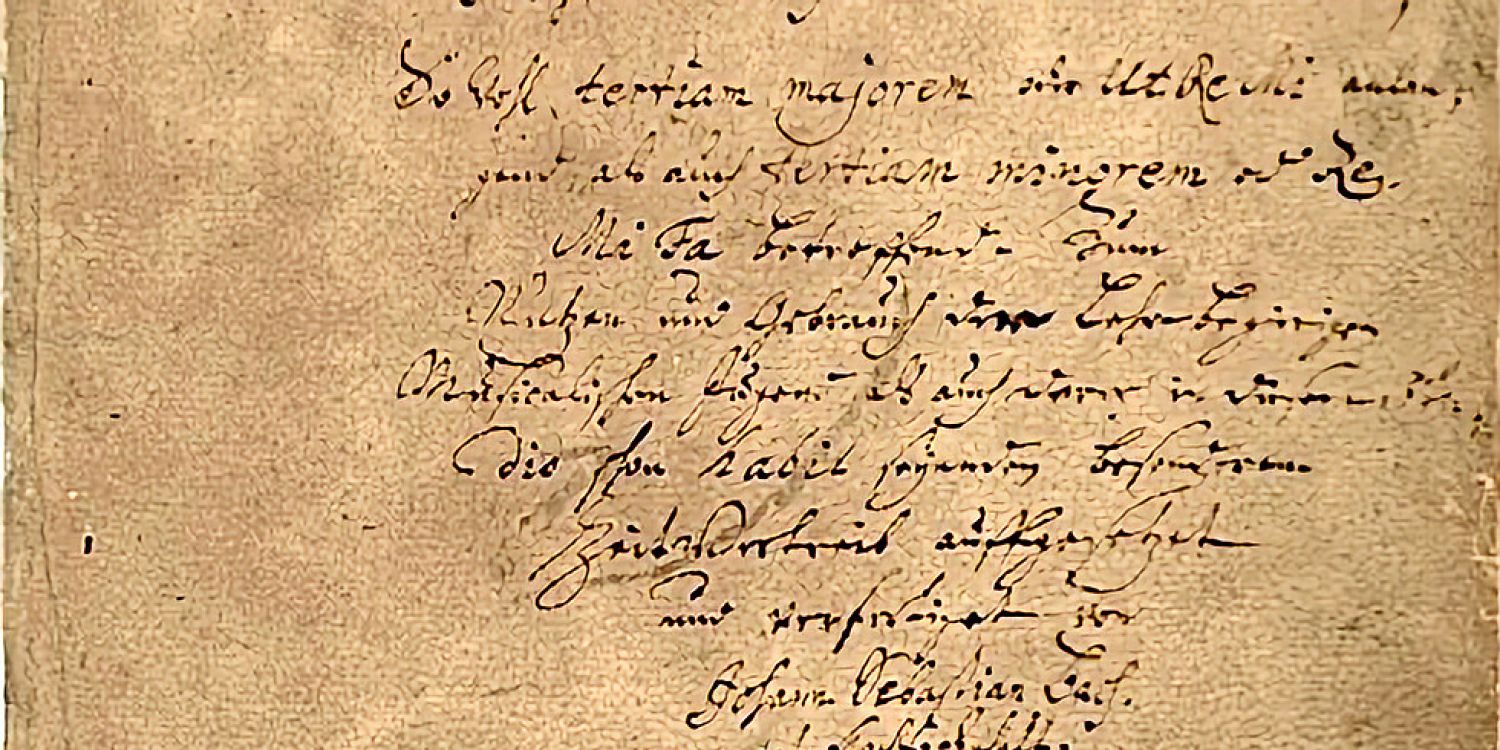 So wohl tertiam majorem oder Ut Re Mi anlan,
gend, als auch tertiam minorem od Re
Mi Fa betreffend. Zum
Nutzen und Gebrauch der Lehr-begierigen
Musicalischen Jugend als auch derer in diesem stu-
dio schon habil seyenden besonderem
ZeitVertreib auffgesetzet
und verfertiget von
Johann Sebastian Bach.